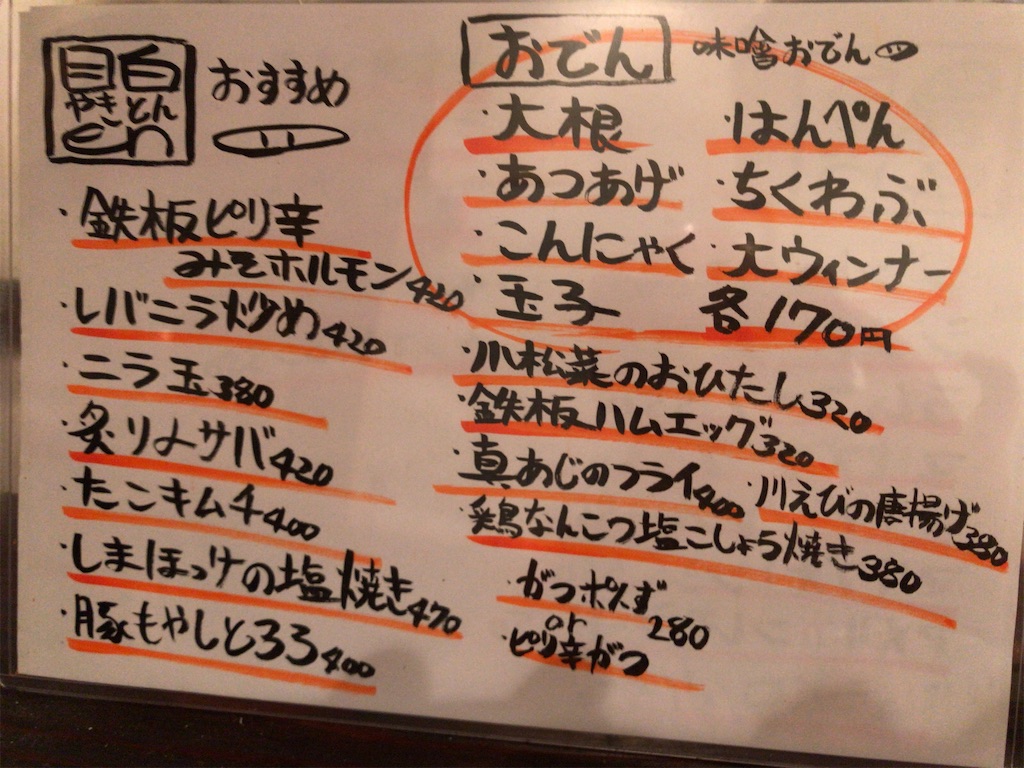 目白
やきとん
en
おすすめ
・鉄板ピリ辛
みそホルモン420
・レバニラ炒め420
・ニラ玉380
・炙り〆サバ420
・たこキムチ400
・しまほっけの塩焼き470
・豚もやしとろろ400
おでん 味噌おでん
・大根 ・はんぺん
・あつあげ ・ちくわぶ
・こんにゃく ・大ウィンナー
・玉子 各170円
・小松菜のおひたし320
・鉄板ハムエッグ320
・真あじのフライ400 ・川えびの唐揚げ380
・鶏なんこつ塩こしょう焼き380
・がつポン酢
or 280
・ピリ辛がつ